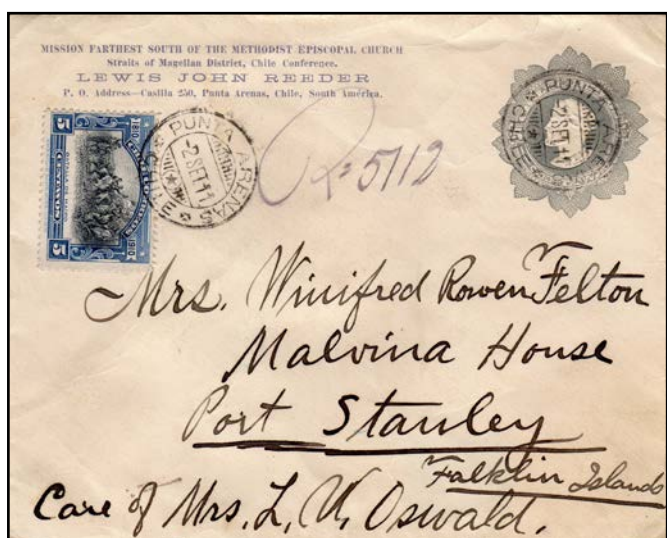 MISSION FARTHEST SOUTH OF THE METHODIST EPISCOPAL CHURCH
Straits of Magellan District, Chile Conference.
LEWIS JOHN REEDER
P. O. Address—Casilla 250, Punta Arenas, Chile, South América.
PUNTA ARENAS
2 SET 11
CHILE
PUNTA ARENAS
2 SET 11
CHILE
5
1810
1910
CENTAVOS
5
R= 5112
Mrs. Winifred Rowen Felton
Malvina House
Port Stanley
Falklin Islands
Care of Mrs. L. W. Oswald.